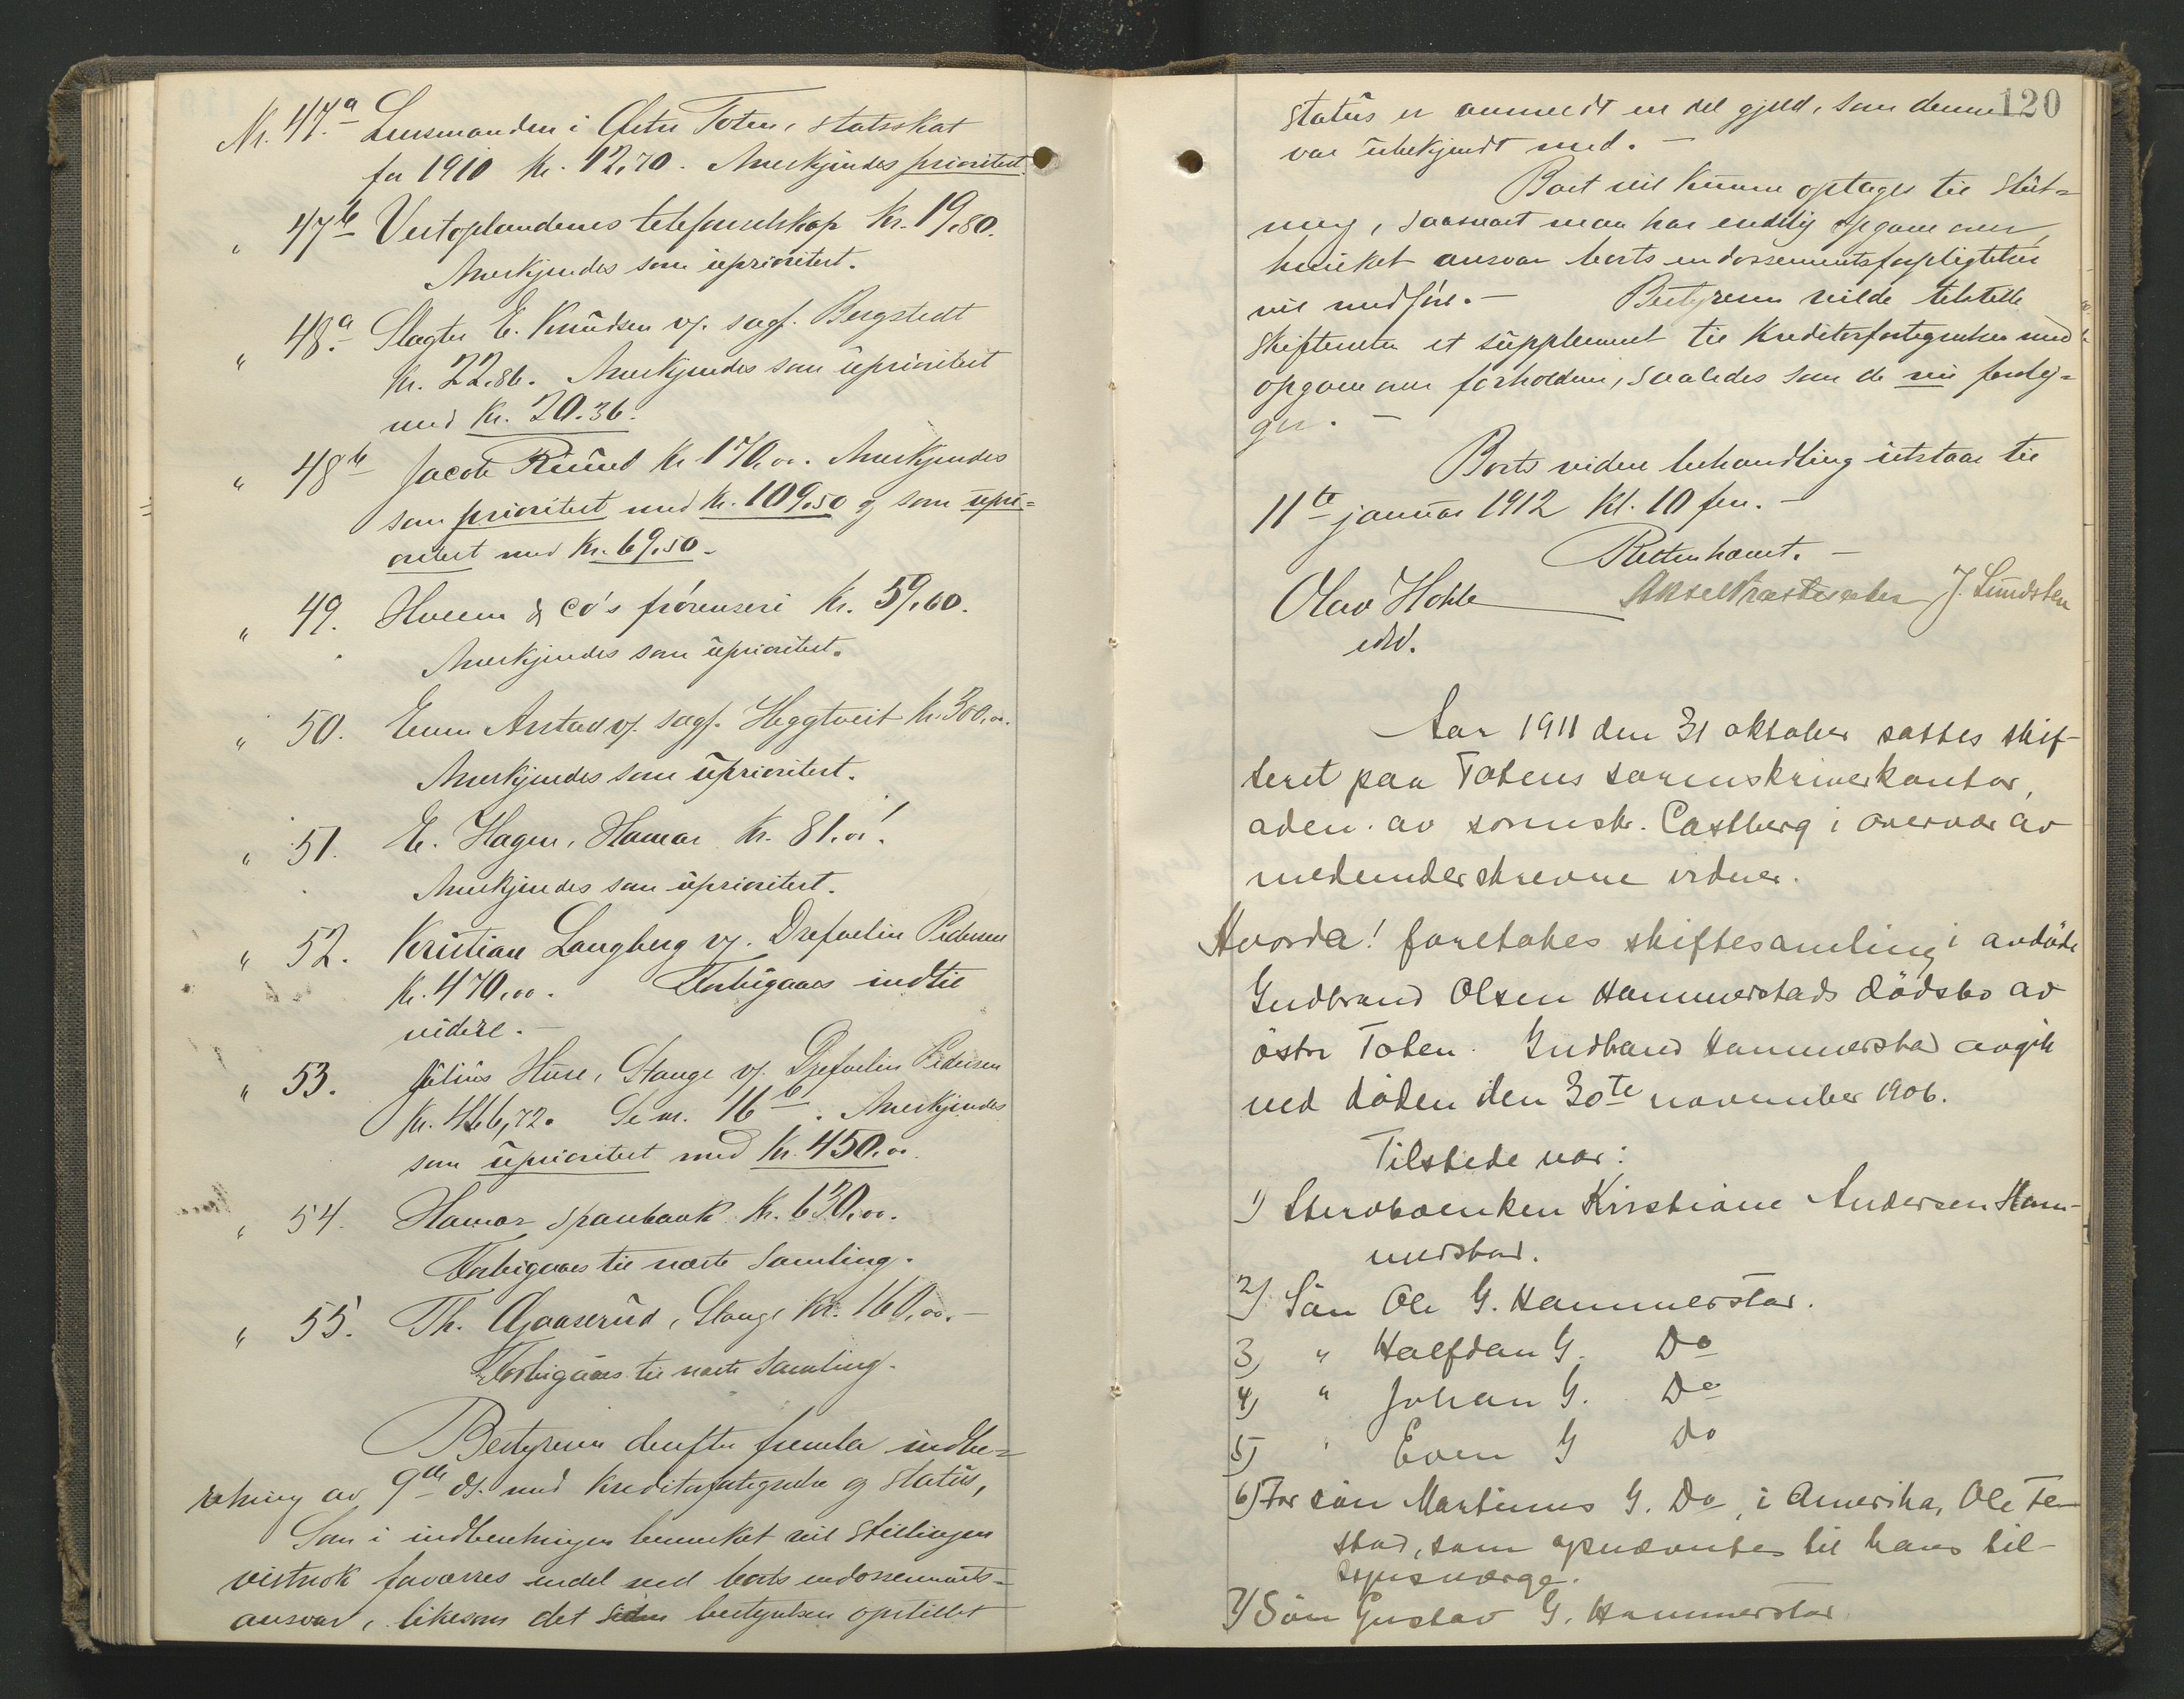 Nr. 47.a Lensmanden i Østre Toten, statsskat
for 1910 kr. 12,70. Anerkjendes prioritert.
" 47b Vestoplandenes telefonselskap kr. 19,80.
Anerkjendes som uprioritert.
" 48.a Slagter E. Knudsen v/ sagf. Bergstedt
kr. 22,86. Anerkjendes som uprioritert
med kr. 20.36.
" 48b Jacob kr 170,00. Anerkjendes
som prioritert med kr. 109,50 og som upri-
oritert med kr. 69,50.
" 49. & Co's frørenseri kr. 59,60.
Anerkjendes som uprioritert.
" 50. Even Anstad v/ sagf. Heggtveit kr. 300,00.
Anerkjendes som uprioritert.
" 51. E. Hagen, Hamar kr. 81,01.
Anerkjendes som uprioritert.
" 52. Kristian Langberg v/ Drefvelin Pedersen
kr. 470,00. Forbigaaes indtil
videre. -
" 53. Julius Huse, Stange v/ Drefvelin Pedersen
kr. 466,72. Se nr. 16b. Anerkjendes
som uprioritert med kr. 450,00.
" 54. Hamar sparebank kr. 630,00.
Forbigaaes til næste samling.
" 55. Th. Gaaserud, Stange kr. 160,00. -
Forbigaaes til næste samling.
Bestyreren derefter fremla indbe-
retning av 9de ds. med kreditorfortegnelse og status,
Som i indberetningen bemerket vil stillingen
vistnok forværres endel ved boets endossements-
ansvar, likesom det siden bestyrelsen opstillet
120
status er anmeldt en del gjeld, som denne
var ubekjendt med. -
Boet vil kunne optages til slut-
ning, saasnart man har endelig opgave over,
hvilket ansvar boets endossementsforpligtelser
vil medføre. - Bestyreren vilde tilstille
skifteretten et supplement til kreditorfortegnelsen med
opgave over forholdene, saaledes som de nu forelig-
ger. -
Boets videre behandling utstaar til
11te januar 1912 kl. 10 fm. -
Retten hævet. -
Olav Hohle J. Sundsten
edsv.
Aar 1911 den 31 oktober sattes skif-
teret paa Totens sorenskriverkontor,
adm. av sorenskr. Castberg i overvær av
medunderskrevne vidner.
Hvorda! foretokes skiftesamling i avdøde
Gudbrand Olsen Hammerstads dødsbo av
østre Toten. Gudbrand Hammerstad avgik
ved døden den 30te november 1906.
Tilstede var:
1) Stervboenken Kirstiane Andersen Ham-
merstad.
2) Søn Ole G. Hammerstad.
3) " Halfdan G. Do
4) " Johan G. Do
5) " Even G Do
6) For søn Martinus G. Do, i Amerika, Ole Te-
stad, som opnævntes til hans til-
synsværge.
7) Søn Gustav G. Hammerstad